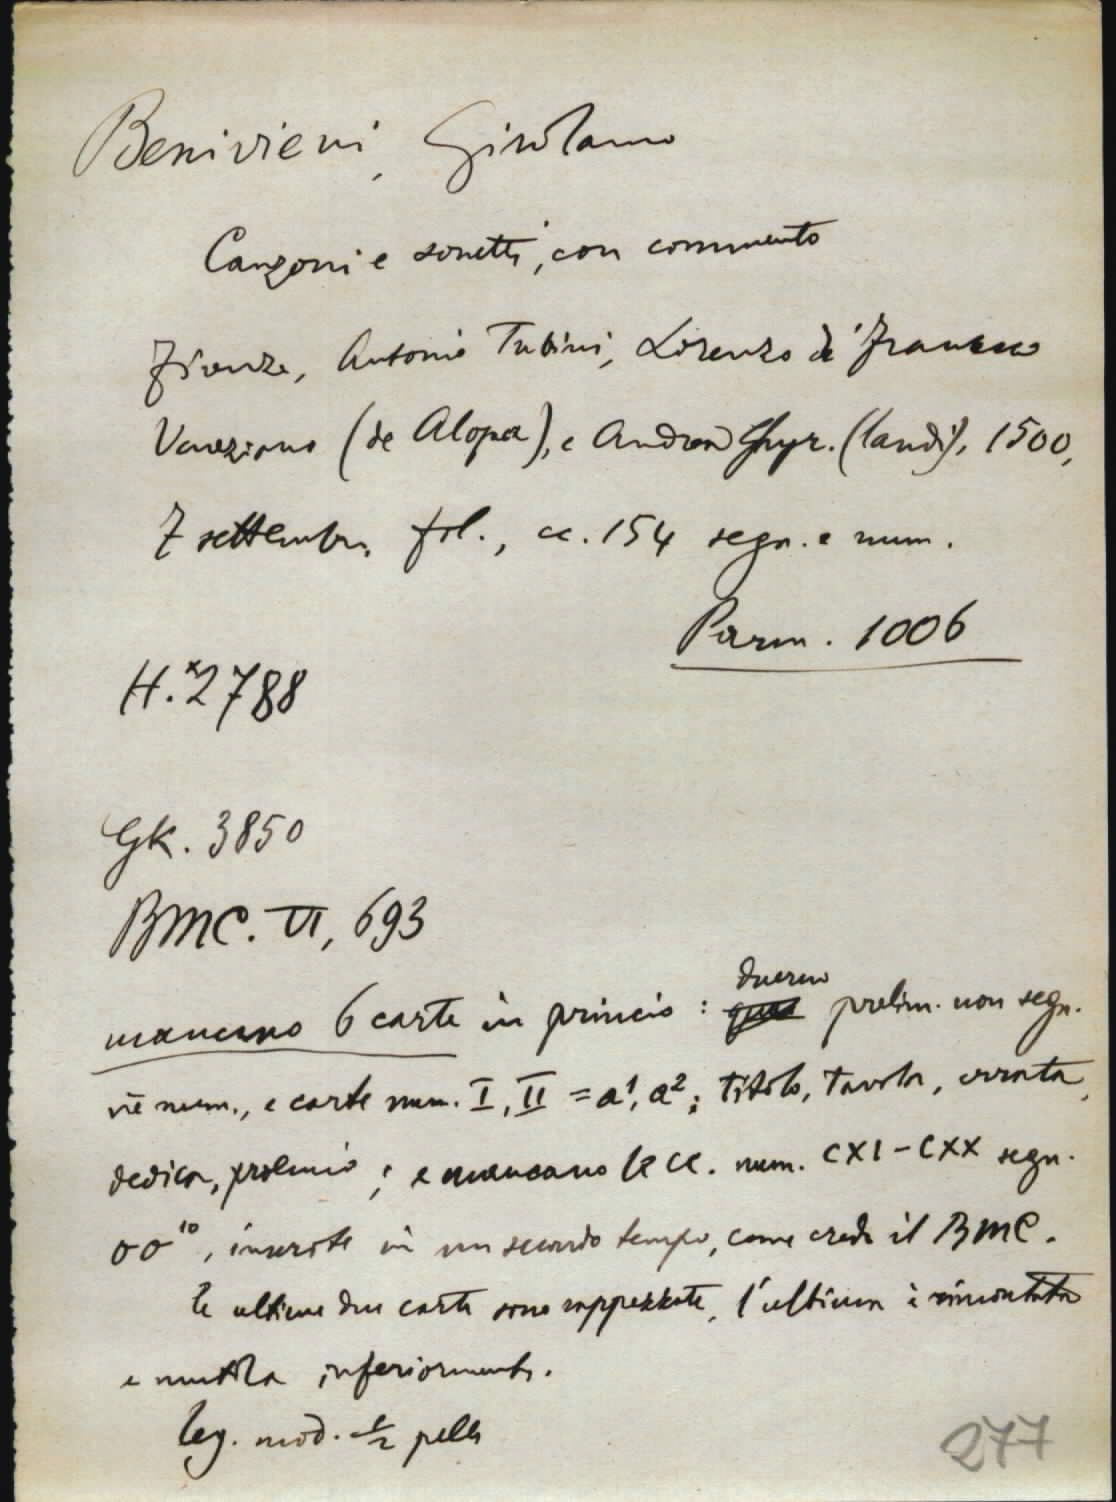 Benivieni, Girolamo
Canzoni e sonetti, con commento
Firenze, Antonio Tubini, Lorenzo di Francesco
Veneziano (de Alopa), e Andrea Ghyr. (landi), 1500,
7 settembre, fol., cc. 154 segn. e num.
Parm. 1006
H.*2788
GK. 3850
BMC. VI, 693
duerno
mancano 6 carte in principio : prelim. non segn.
nè num., e carte num. I, II = a¹, a²; titolo, tavola, errata,
dedica, proemio ; e mancano le cc. num. CXI-CXX segn.
oo¹⁰, inserite in un secondo tempo, come crede il BMC.
le ultime due carte sono rappezzate, l'ultima è rimontata
e mutila inferiormente.
leg. mod. ½ pelle
277